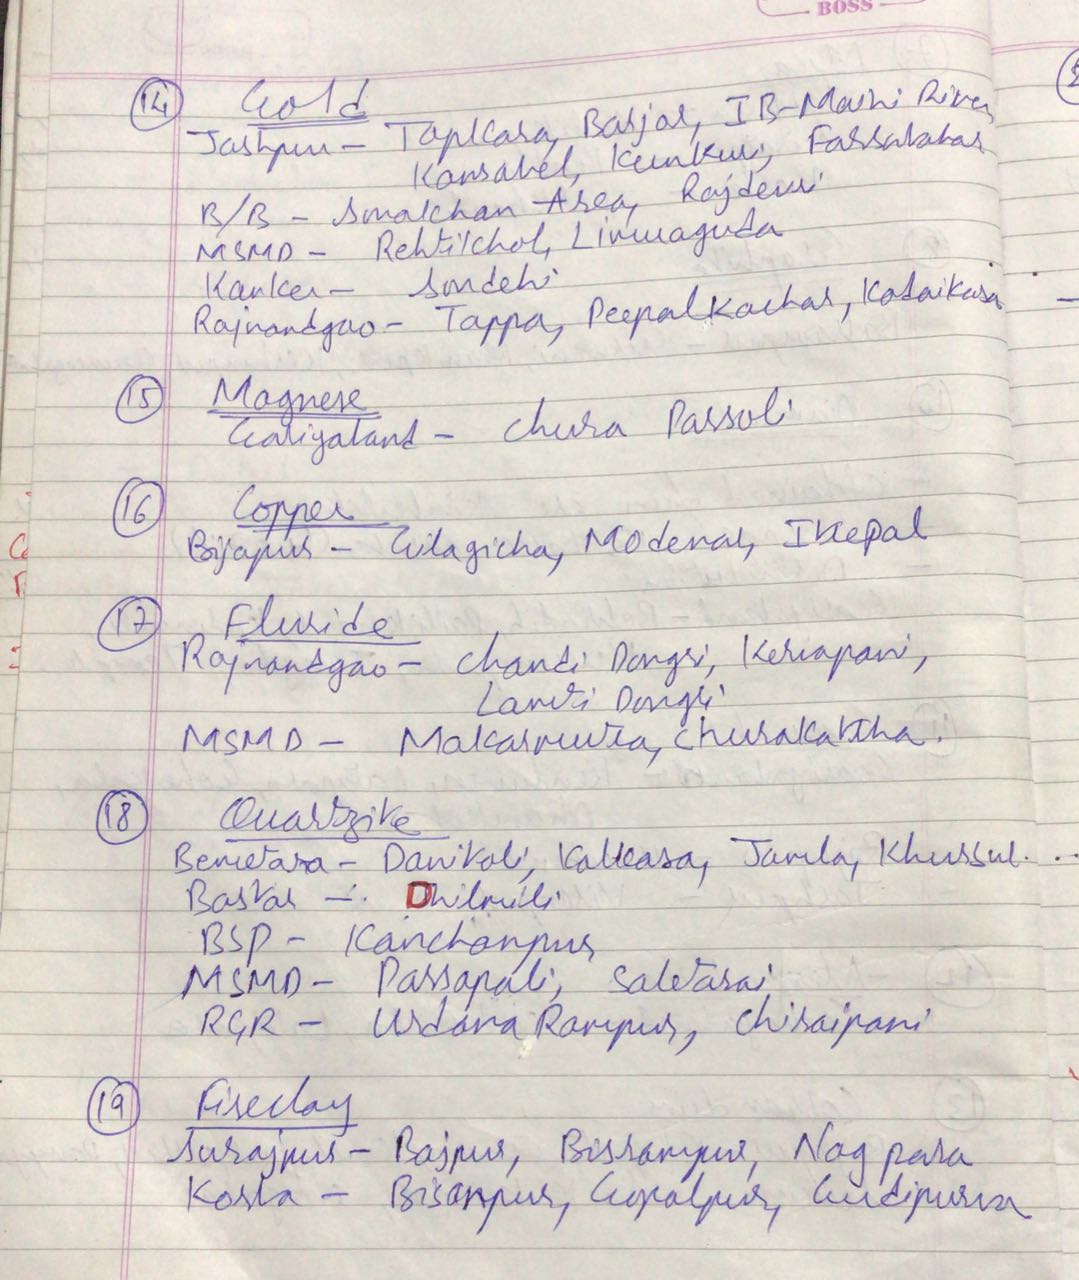 BOSS
14 Gold
Jashpur - Tapkara, Barjor, IB-Maini River,
Kansabel, Kunkuri, Farsabahar
B/B - Sonakhan Area, Rajdevri
MSMD - Rehtikhol, Limuaguda
Kanker - Sondehi
Rajnandgao - Tappa, Peepal Kachar, Kadaikasa
15 Magnese
Gariyaband - Chura Parsoli
16 Copper
Bijapur - Gilagicha, Modenal, Ikepal
17 Fluride
Rajnandgao - Chandi Dongri, Keriapani,
Dongri
MSMD - Makarmuta, Churakattha.
18 Quartzite
Bemetara - Danikoli, Kalkasa, Jamla, Khursul...
Bastar - Dhilmili
BSP - Kanchanpur
MSMD - Parsapali, Saletarai
RGR - Urdana Rampur, Chiraipani
19 Fireclay
Surajpur - Rajpur, Bisrampur, Nag para
Korba - Bisanpur, Gopalpur,